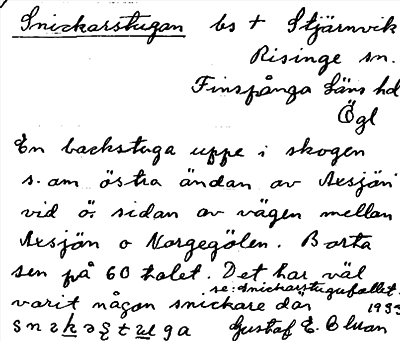 Snickarstugan bs † Stjärnvik
Risinge sn.
Finspånga läns hd
Ögl
En backstuga uppe i skogen
s. om östra ändan av Axsjön
vid ö. sidan av vägen mellan
Axsjön o Norgegölen. Borta
sen på 60 talet. Det har väl
se: snickarstugufallet.
varit någon snickare där 1933
Gustaf E. Ekman